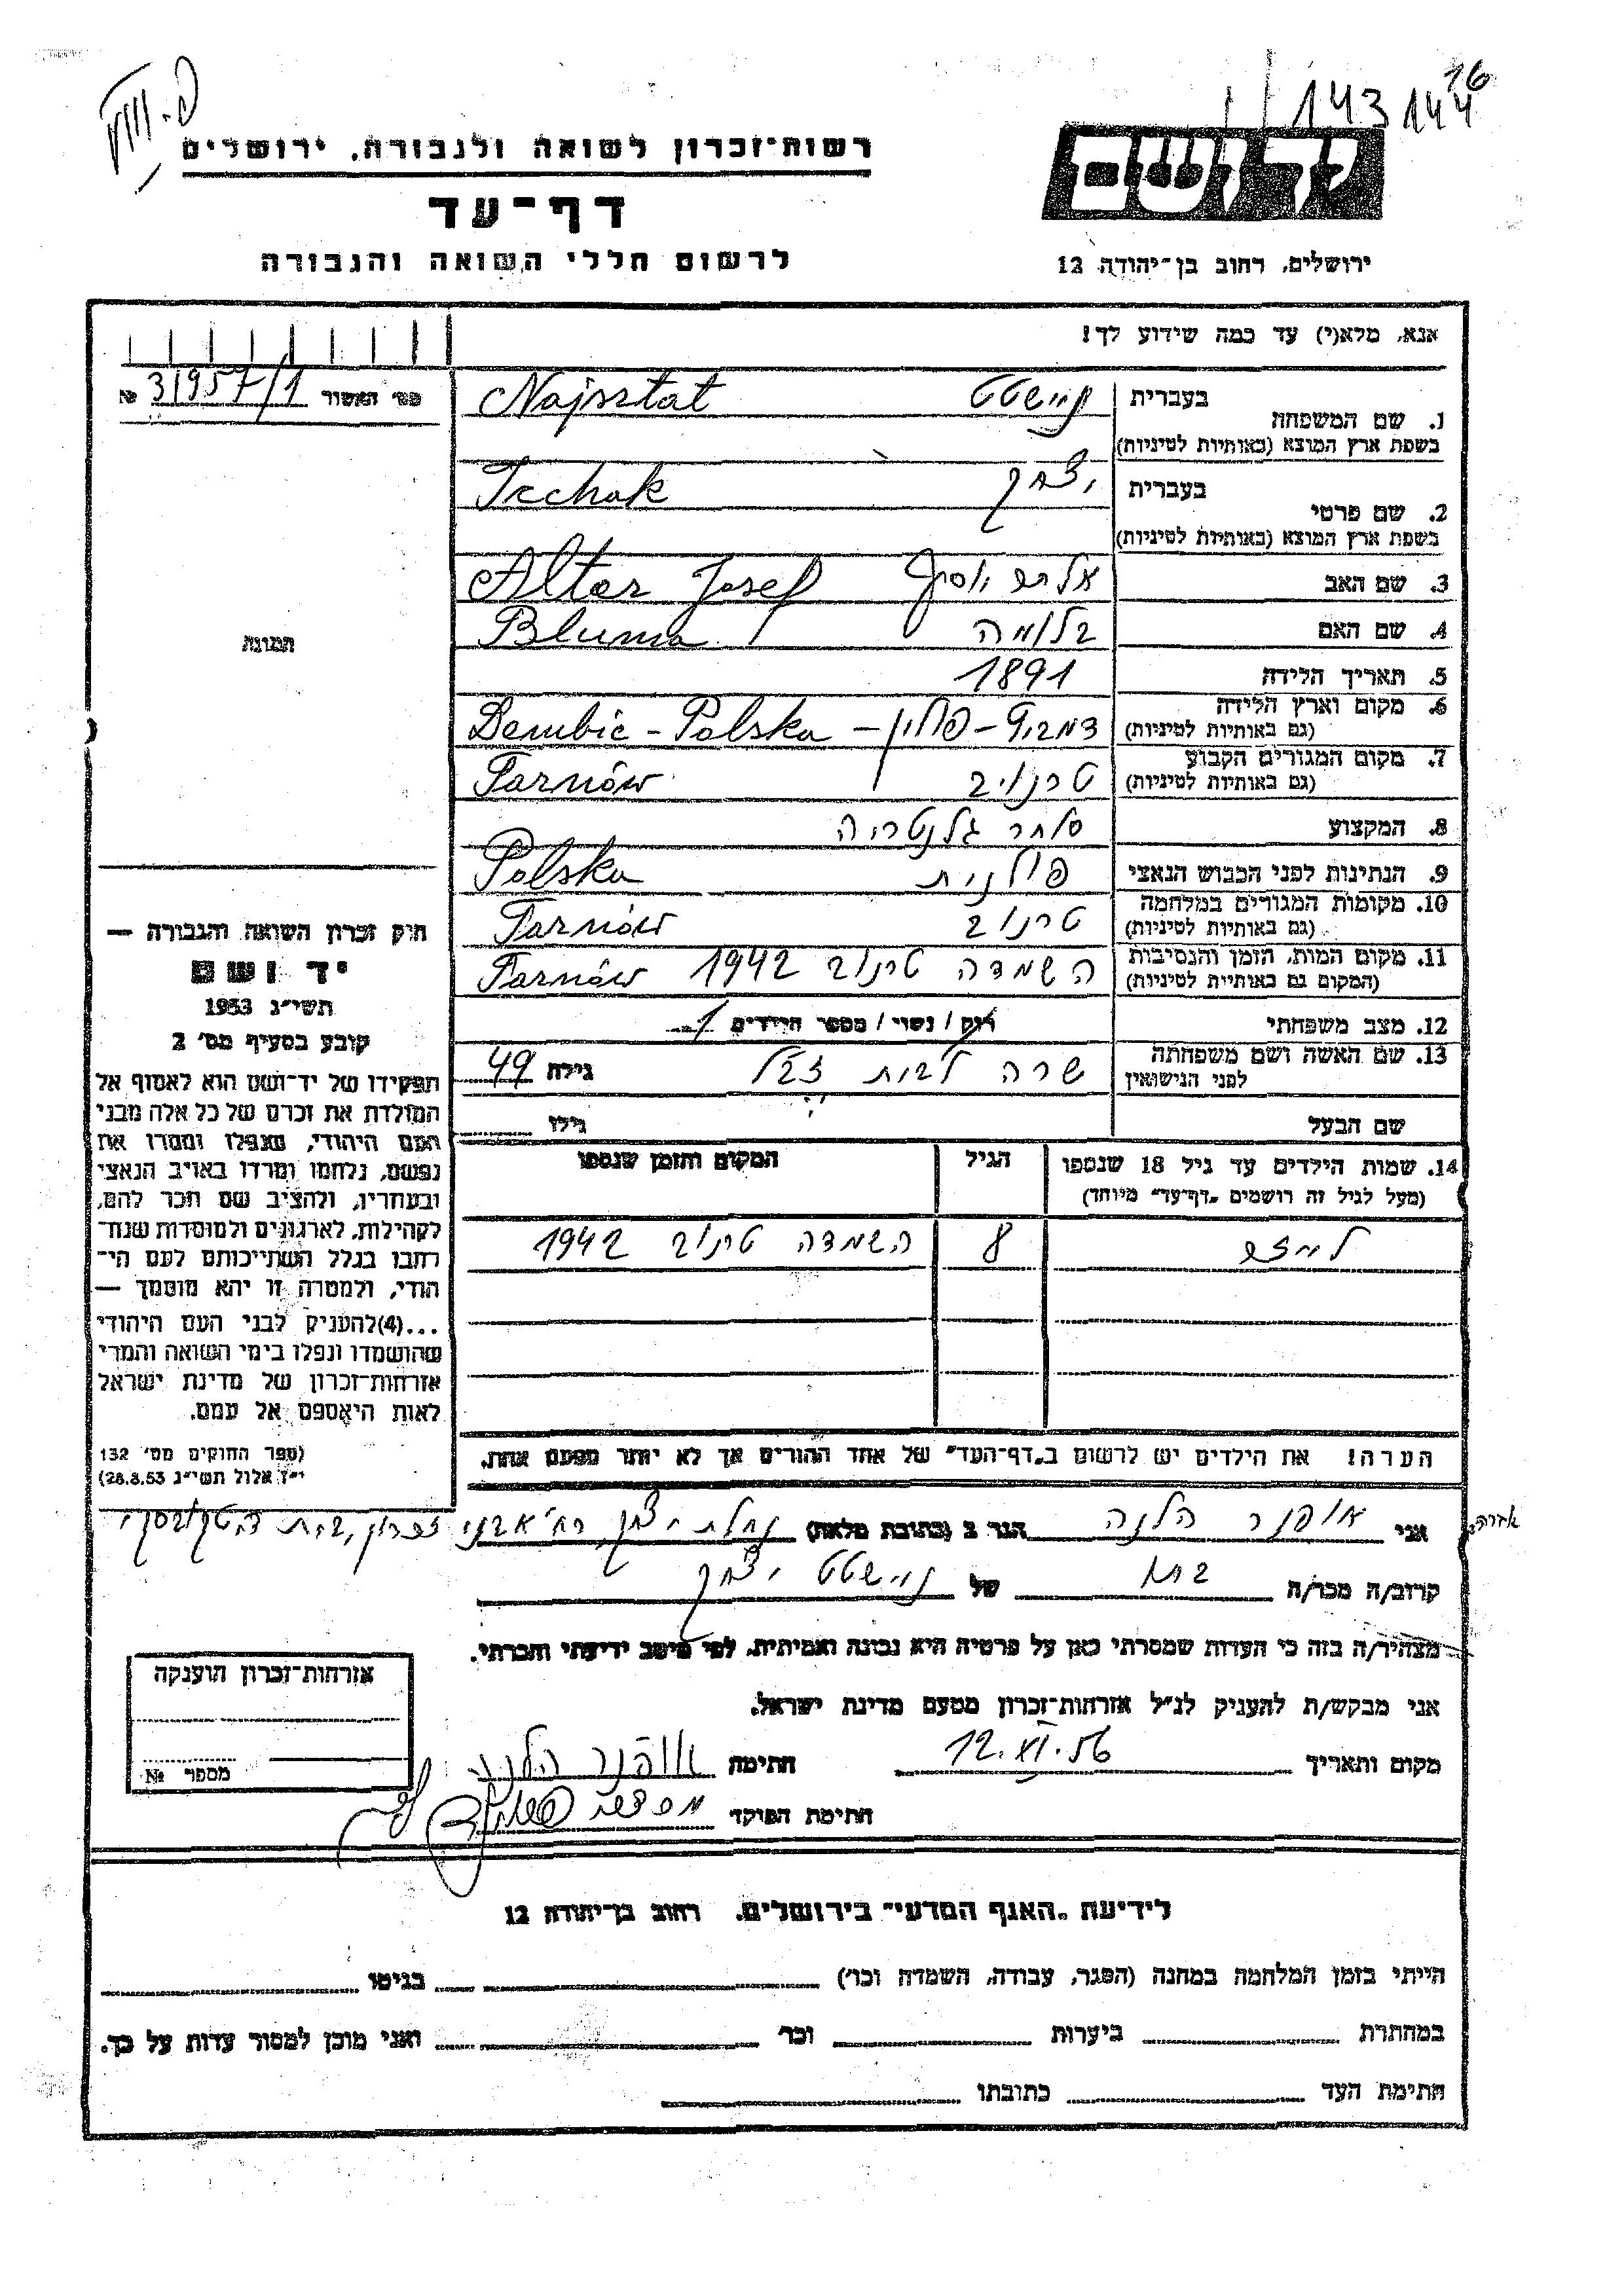 16
143 144
רשות־זכרון לשואה ולגבורה, ירושלים
דף־עד
לרשום חללי השואה והגבורה
ידושם
ירושלים, רחוב בן־יהודה 12
אנא, מלא(י) עד כמה שידוע לך!
מס׳ האשור 31957/1 №
בעברית נוישטט Najsztat
1. שם המשפחה
בשפת ארץ המוצא (באותיות לטיניות)
בעברית יצחק Izchak
2. שם פרטי
בשפת ארץ המוצא (באותיות לטיניות)
3. שם האב אלתר יוסף Altar Josef
4. שם האם בלומה Bluma
5. תאריך הלידה 1891
6. מקום וארץ הלידה דמביץ – פולין – Dembic – Polska
(גם באותיות לטיניות)
7. מקום המגורים הקבוע טרנוב Tarnów
(גם באותיות לטיניות)
8. המקצוע סוחר גלנטריה
9. הנתינות לפני הכבוש הנאצי פולנית Polska
10. מקומות המגורים במלחמה טרנוב Tarnów
(גם באותיות לטיניות)
11. מקום המות, הזמן והנסיבות השמדה טרנוב 1942 Tarnów
(המקום גם באותיות לטיניות)
12. מצב משפחתי רוק / נשוי / מספר הילדים 1
13. שם האשה ושם משפחתה שרה לבית גילה 49
לפני הנישואין
שם הבעל גילו
14. שמות הילדים עד גיל 18 שנספו הגיל המקום והזמן שנספו
(מעל לגיל זה רושמים „דף־עד״ מיוחד)
8 השמדה טרנוב 1942
הערה! את הילדים יש לרשום ב„דף־העד״ של אחד ההורים אך לא יותר מפעם אחת.
תמונה
חוק זכרון השואה והגבורה —
יד ושם
תשי״ג 1953
קובע בסעיף מס׳ 2
תפקידו של יד־ושם הוא לאסוף אל
המולדת את זכרם של כל אלה מבני
העם היהודי, שנפלו ומסרו את
נפשם, נלחמו ומרדו באויב הנאצי
ובעוזריו, ולהציב שם וזכר להם,
לקהילות, לארגונים ולמוסדות שנח־
רבו בגלל השתייכותם לעם הי־
הודי, ולמטרה זו יהא מוסמך —
...(4)להעניק לבני העם היהודי
שהושמדו ונפלו בימי השואה והמרי
אזרחות־זכרון של מדינת ישראל
לאות היאספם אל עמם.
(ספר החוקים מס׳ 132
י״ז אלול תשי״ג 28.8.53)
אני אופנר הלנה הגר ב (כתובת מלאה) נחלת יצחק רח׳ אבני זכרון, בית
קרוב/ה מכר/ה בתו של נוישטט יצחק
מצהיר/ה בזה כי העדות שמסרתי כאן על פרטיה היא נכונה ואמיתית, לפי מיטב ידיעתי והכרתי.
אני מבקש/ת להעניק לנ״ל אזרחות־זכרון מטעם מדינת ישראל.
מקום ותאריך 12.XI.56 חתימה אופנר הלנה
חתימת הפוקד
אזרחות־זכרון הוענקה
מספר №
לידיעת „האגף המדעי״ בירושלים, רחוב בן־יהודה 12
הייתי בזמן המלחמה במחנה (הסגר, עבודה, השמדה וכו׳) בגיטו
במחתרת ביערות וכו׳ ואני מוכן למסור עדות על כך.
חתימת העד כתובתו